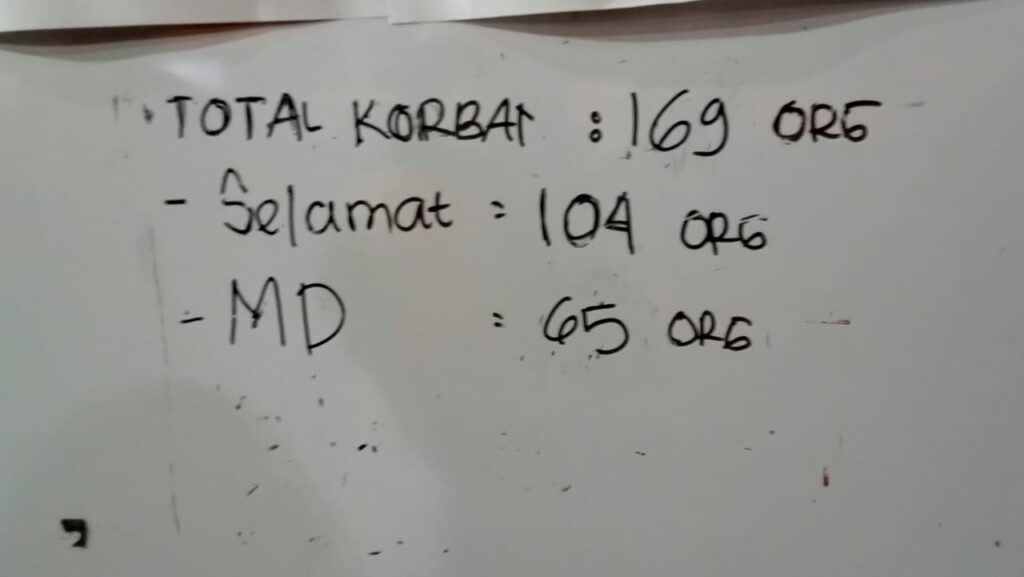 TOTAL KORBAN : 169 ORG
- Selamat : 104 ORG
- MD : 65 ORG